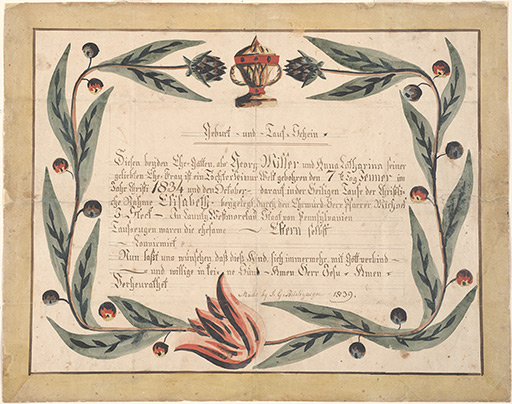 Geburt - und - Tauf - Schein -
Diesen beyden Ehe-Gatten, als Georg Miller und Anna Catharina seiner
geliebten Ehe-Frau ist ein Töchterlein zur Welt gebohren den 7t Tag Jenner im
Jahr Christi 1834 und den October - darauf in der Heiligen Taufe der Christli-
che Nahme Elisabeth - beygelegt durch den Ehrwürd. Herr Pfarrer Michael
in County Westmoreland Staat von Pennsylvanien
Taufzeugen waren die ehesame - Eltern selbst
Nun laßt uns wünschen, daß dieß Kind, sich immermehr, mit Gott verbind -
und willige in kei - ne Sünd - Amen Herr Jesu - Amen -
Made by 1839.